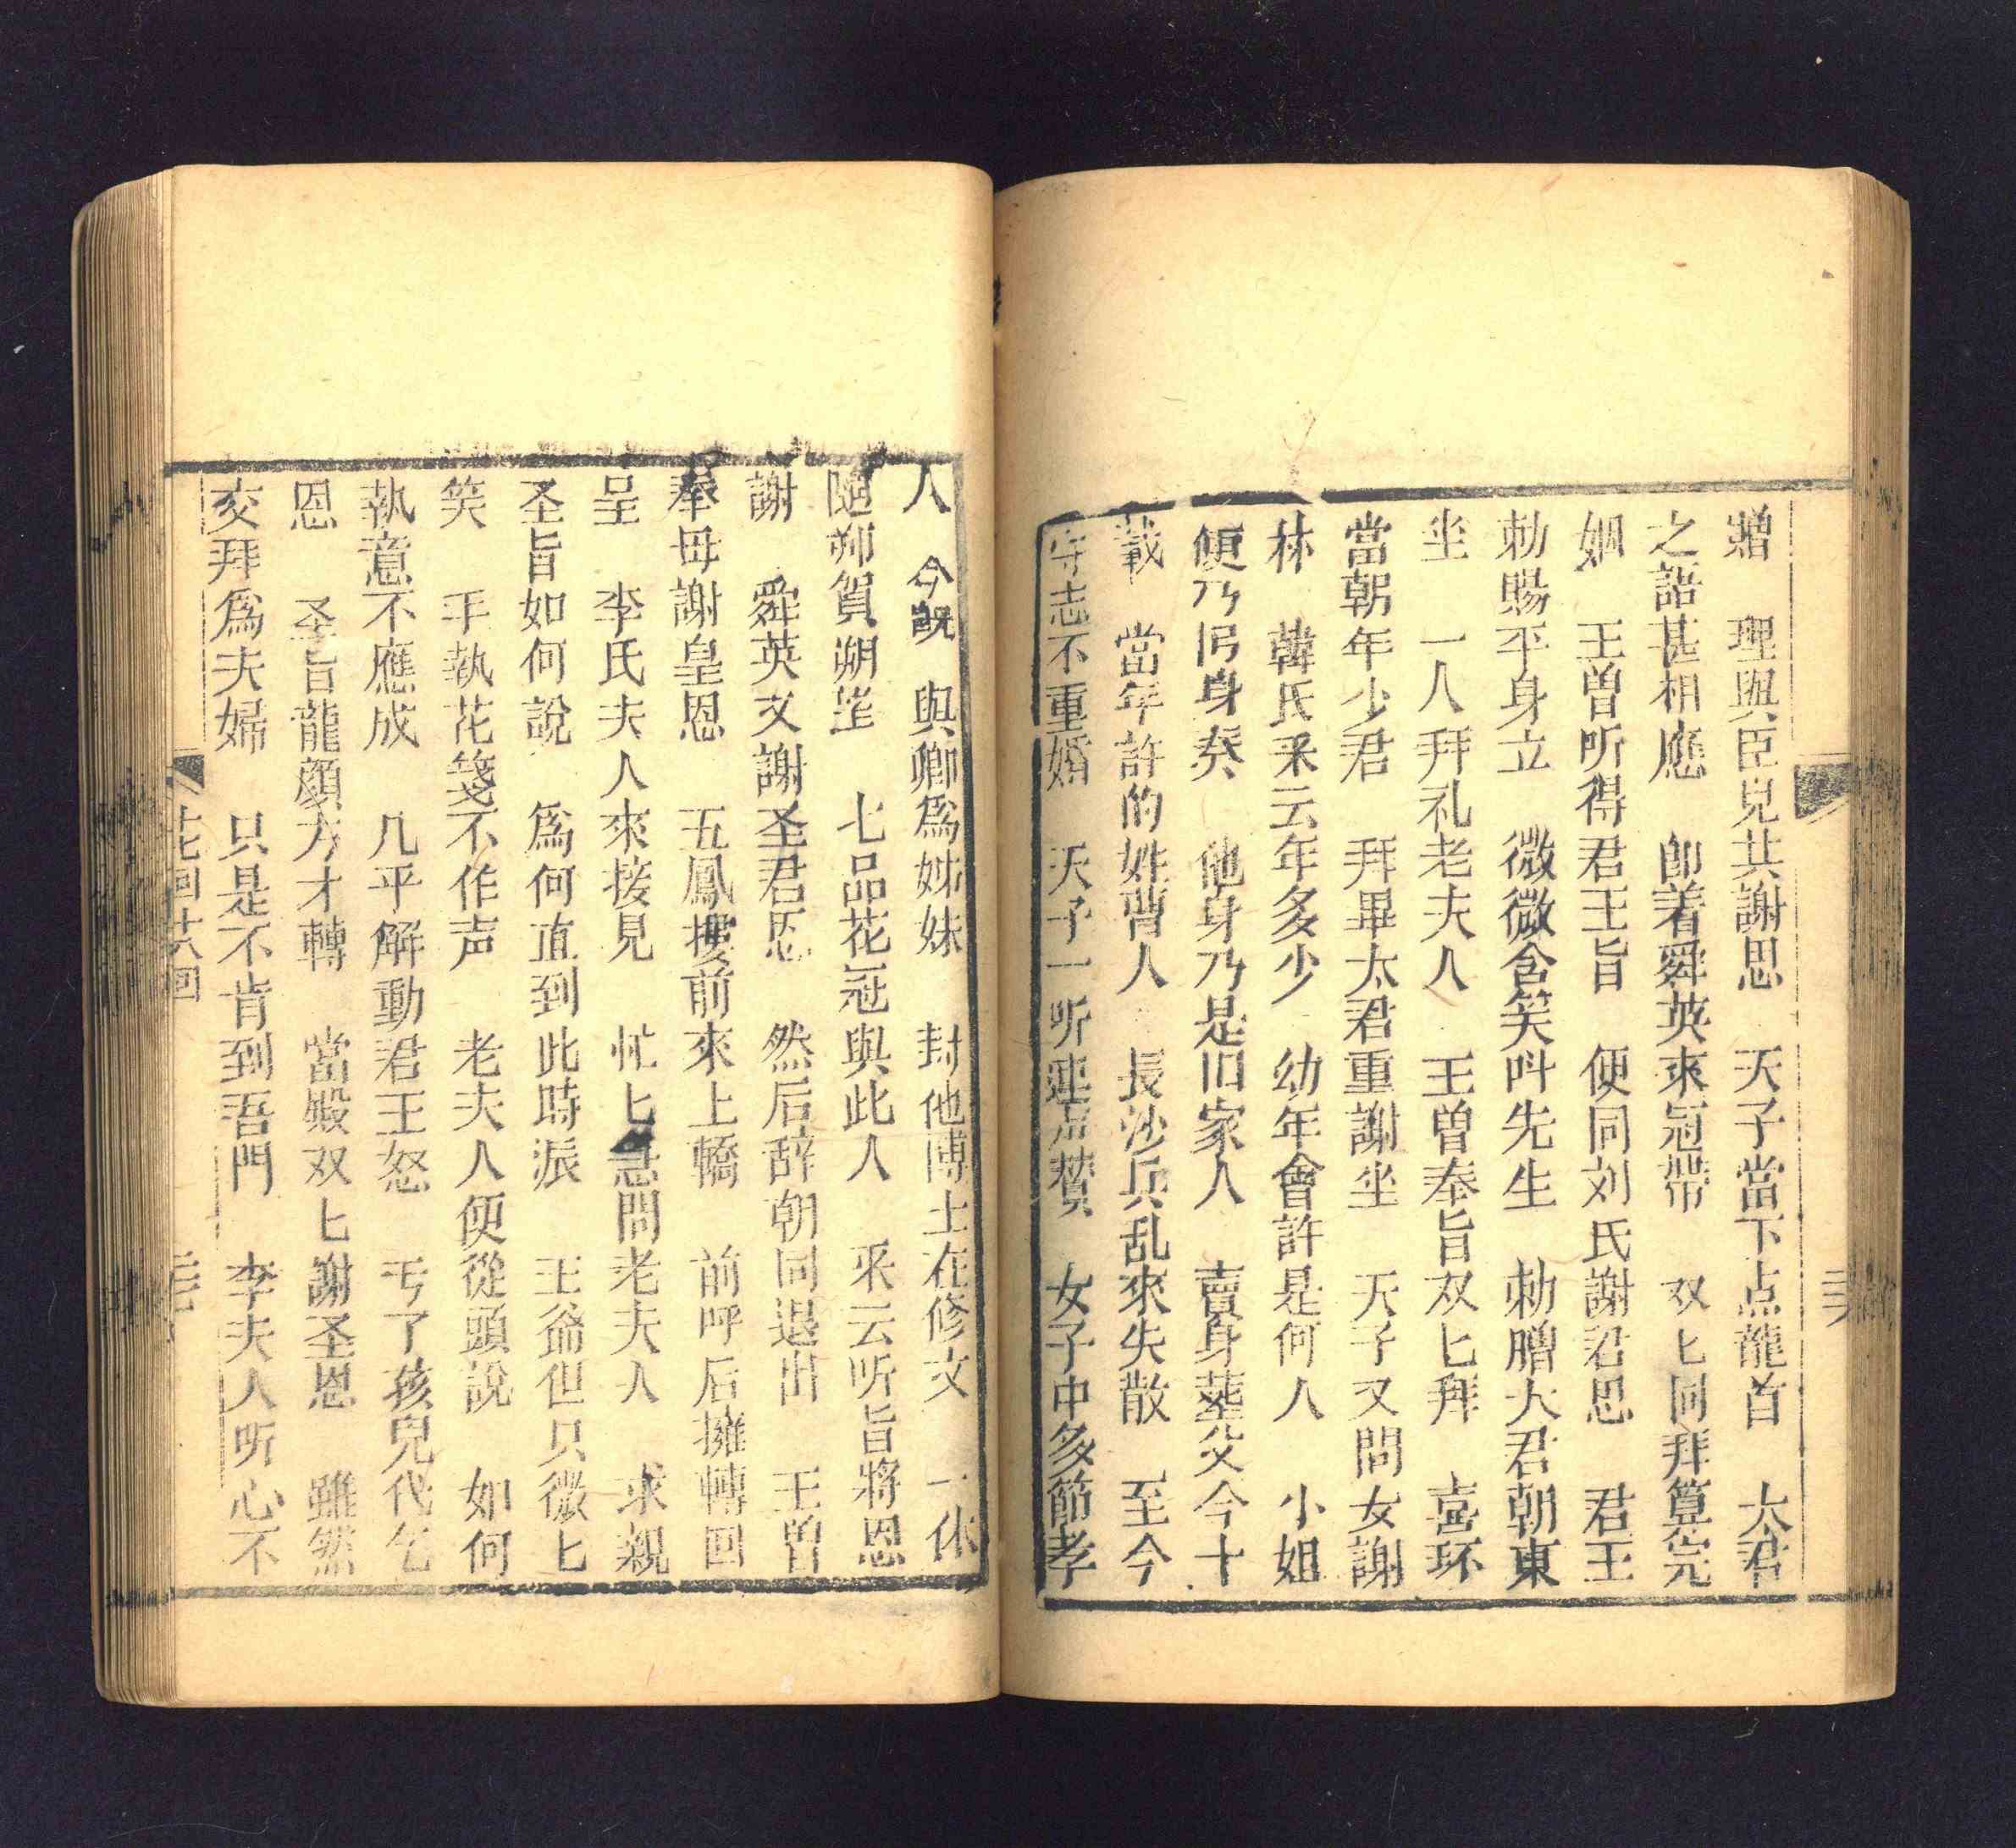 理與臣兒共謝恩　天子當下点龍首　大君
之語甚相應　即着舜英來冠帶　双匕同拜算完
姻　王曽听得君王旨　便同刘氏謝君恩　君王
勅賜平身立　微微含笑呌先生　勅贈大君朝東
坐　一人拜礼老夫人　王曽奉旨双匕拜　喜坏
當朝年少君　拜畢太君重謝坐　天子又問女謝
林　韓氏釆云年多少　幼年會許是何人　小姐
便乃身奏　他身乃是旧家人　賣身塟父今十
載　當年許的姓曹人　長沙兵乱來失散　至今
守志不重婚　天子一听連点賛　女子中多節孝
人　今既與卿爲姊妹　封他博士在修文　一体
随卿賀朔　七品花冠與此人　釆云听旨將恩
謝　舜英又謝圣君恩　然后辞朝同退出　王曽
奉母謝皇恩　五鳳樓前來上轎　前呼后擁轉回
呈　李氏夫人來接見　忙匕急問老夫人　求親
圣旨如何說　爲何直到此時派　王爺但只微匕
笑　手執花箋不作声　老夫人便從頭說　如何
執意不應成　几乎觧動君王怒　亏了孩兒代乞
恩　圣旨龍顏方才轉　當殿双匕謝圣恩　雖然
交拜爲夫婦　只是不肯到吾門　李夫人听心不